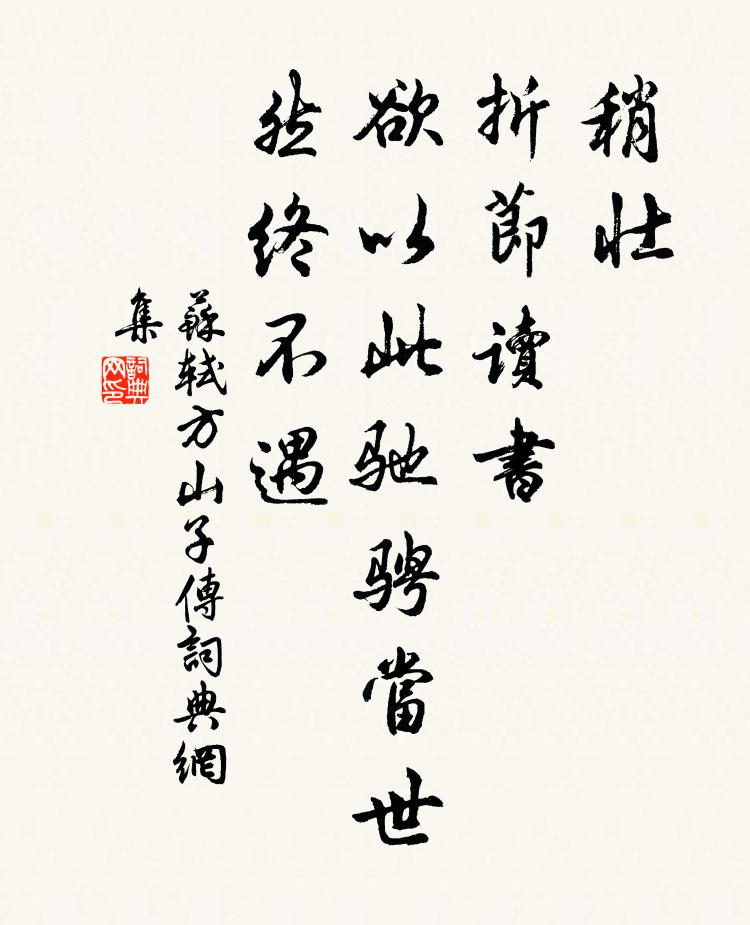 稍壮
折節讀書
欲以此驰骋當世
然终不遇
蘇軾方山子傳詞典網
集
詞典网印